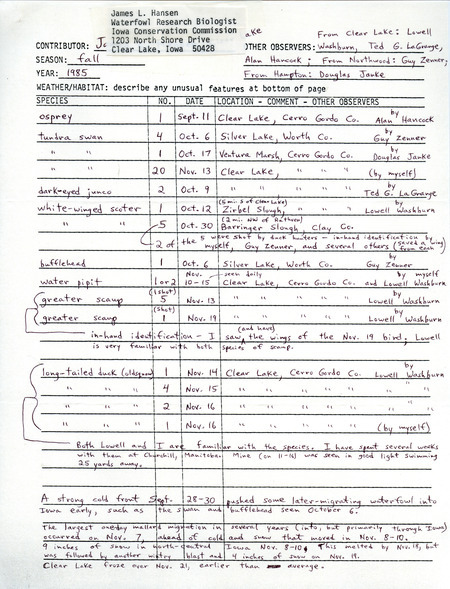 James L. Hansen
Waterfowl Research Biologist
Iowa Conservation Commission
1203 North Shore Drive
Clear Lake, Iowa 50428
CONTRIBUTOR: Ja
ake
OTHER OBSERVERS: From Clear Lake: Lowell
Washburn, Ted G. LaGrange,
Alan Hancock; From Northwood: Guy Zenner,
From Hampton: Douglas Janke
SEASON: fall
YEAR: 1985
WEATHER/HABITAT: describe any unusual features at bottom of page
SPECIES NO. DATE LOCATION - COMMENT - OTHER OBSERVERS
osprey 1 Sept. 11 Clear Lake, Cerro Gordo Co. by Alan Hancock
tundra swan 4 Oct. 6 Silver Lake, Worth Co. by Guy Zenner
" " 1 Oct. 17 Ventura Marsh, Cerro Gordo Co. by Douglas Janke
" " 20 Nov. 13 Clear Lake, " " " (by myself)
dark-eyed junco 2 Oct. 9 " " " " " by Ted G. LaGrange
white-winged scoter 1 Oct. 12 (5 mi. S of Clear Lake) Zirbel Slough, " " " by Lowell Washburn
5 Oct. 30 (2 mi. NW of Ruthven) Barringer Slough, Clay Co.
2 of the 5 were shot by duck hunters - in-hand identification by
myself, Guy Zenner, and several others (saved a wing from each)
bufflehead 1 Oct. 6 Silver Lake, Worth Co. by Guy Zenner
water pipit 1 or 2 Nov. 10-15 seen daily Clear Lake, Cerro Gordo Co. by myself and Lowell Washburn
greater scaup (1 shot) 5 Nov. 13 " " " " " by Lowell Washburn
greater scaup (shot) 1 Nov. 19 " " " " " by Lowell Washburn
in-hand identification - I saw (and have) the wings of the Nov. 19 bird, Lowell
is very familiar with both species of scaup.
long-tailed duck (oldsquaw) 1 Nov. 14 Clear Lake, Cerro Gordo Co. by Lowell Washburn
" " " 4 Nov. 15 " " " " "
" " " 2 Nov. 16 " " " " "
" " " 1 Nov. 16 " " " " " (by myself)
Both Lowell and I are familiar with the species. I have spent several weeks
with them at Churchill, Manitoba. Mine (on 11-16) was seen in good light swimming
25 yards away.
A strong cold front Sept. 28-30 pushed some later-migrating waterfowl into
Iowa early, such as the swan and bufflehead seen October 6.
The largest one-day mallard migration in several years (into, but primarily through Iowa)
occurred on Nov. 7, ahead of cold and snow that moved in Nov. 8-10.
9 inches of snow in north-central Iowa Nov. 8-10. This melted by Nov. 18, but
was followed by another wintry blast and 4 inches of snow on Nov. 19.
Clear Lake froze over Nov. 21, earlier than average.